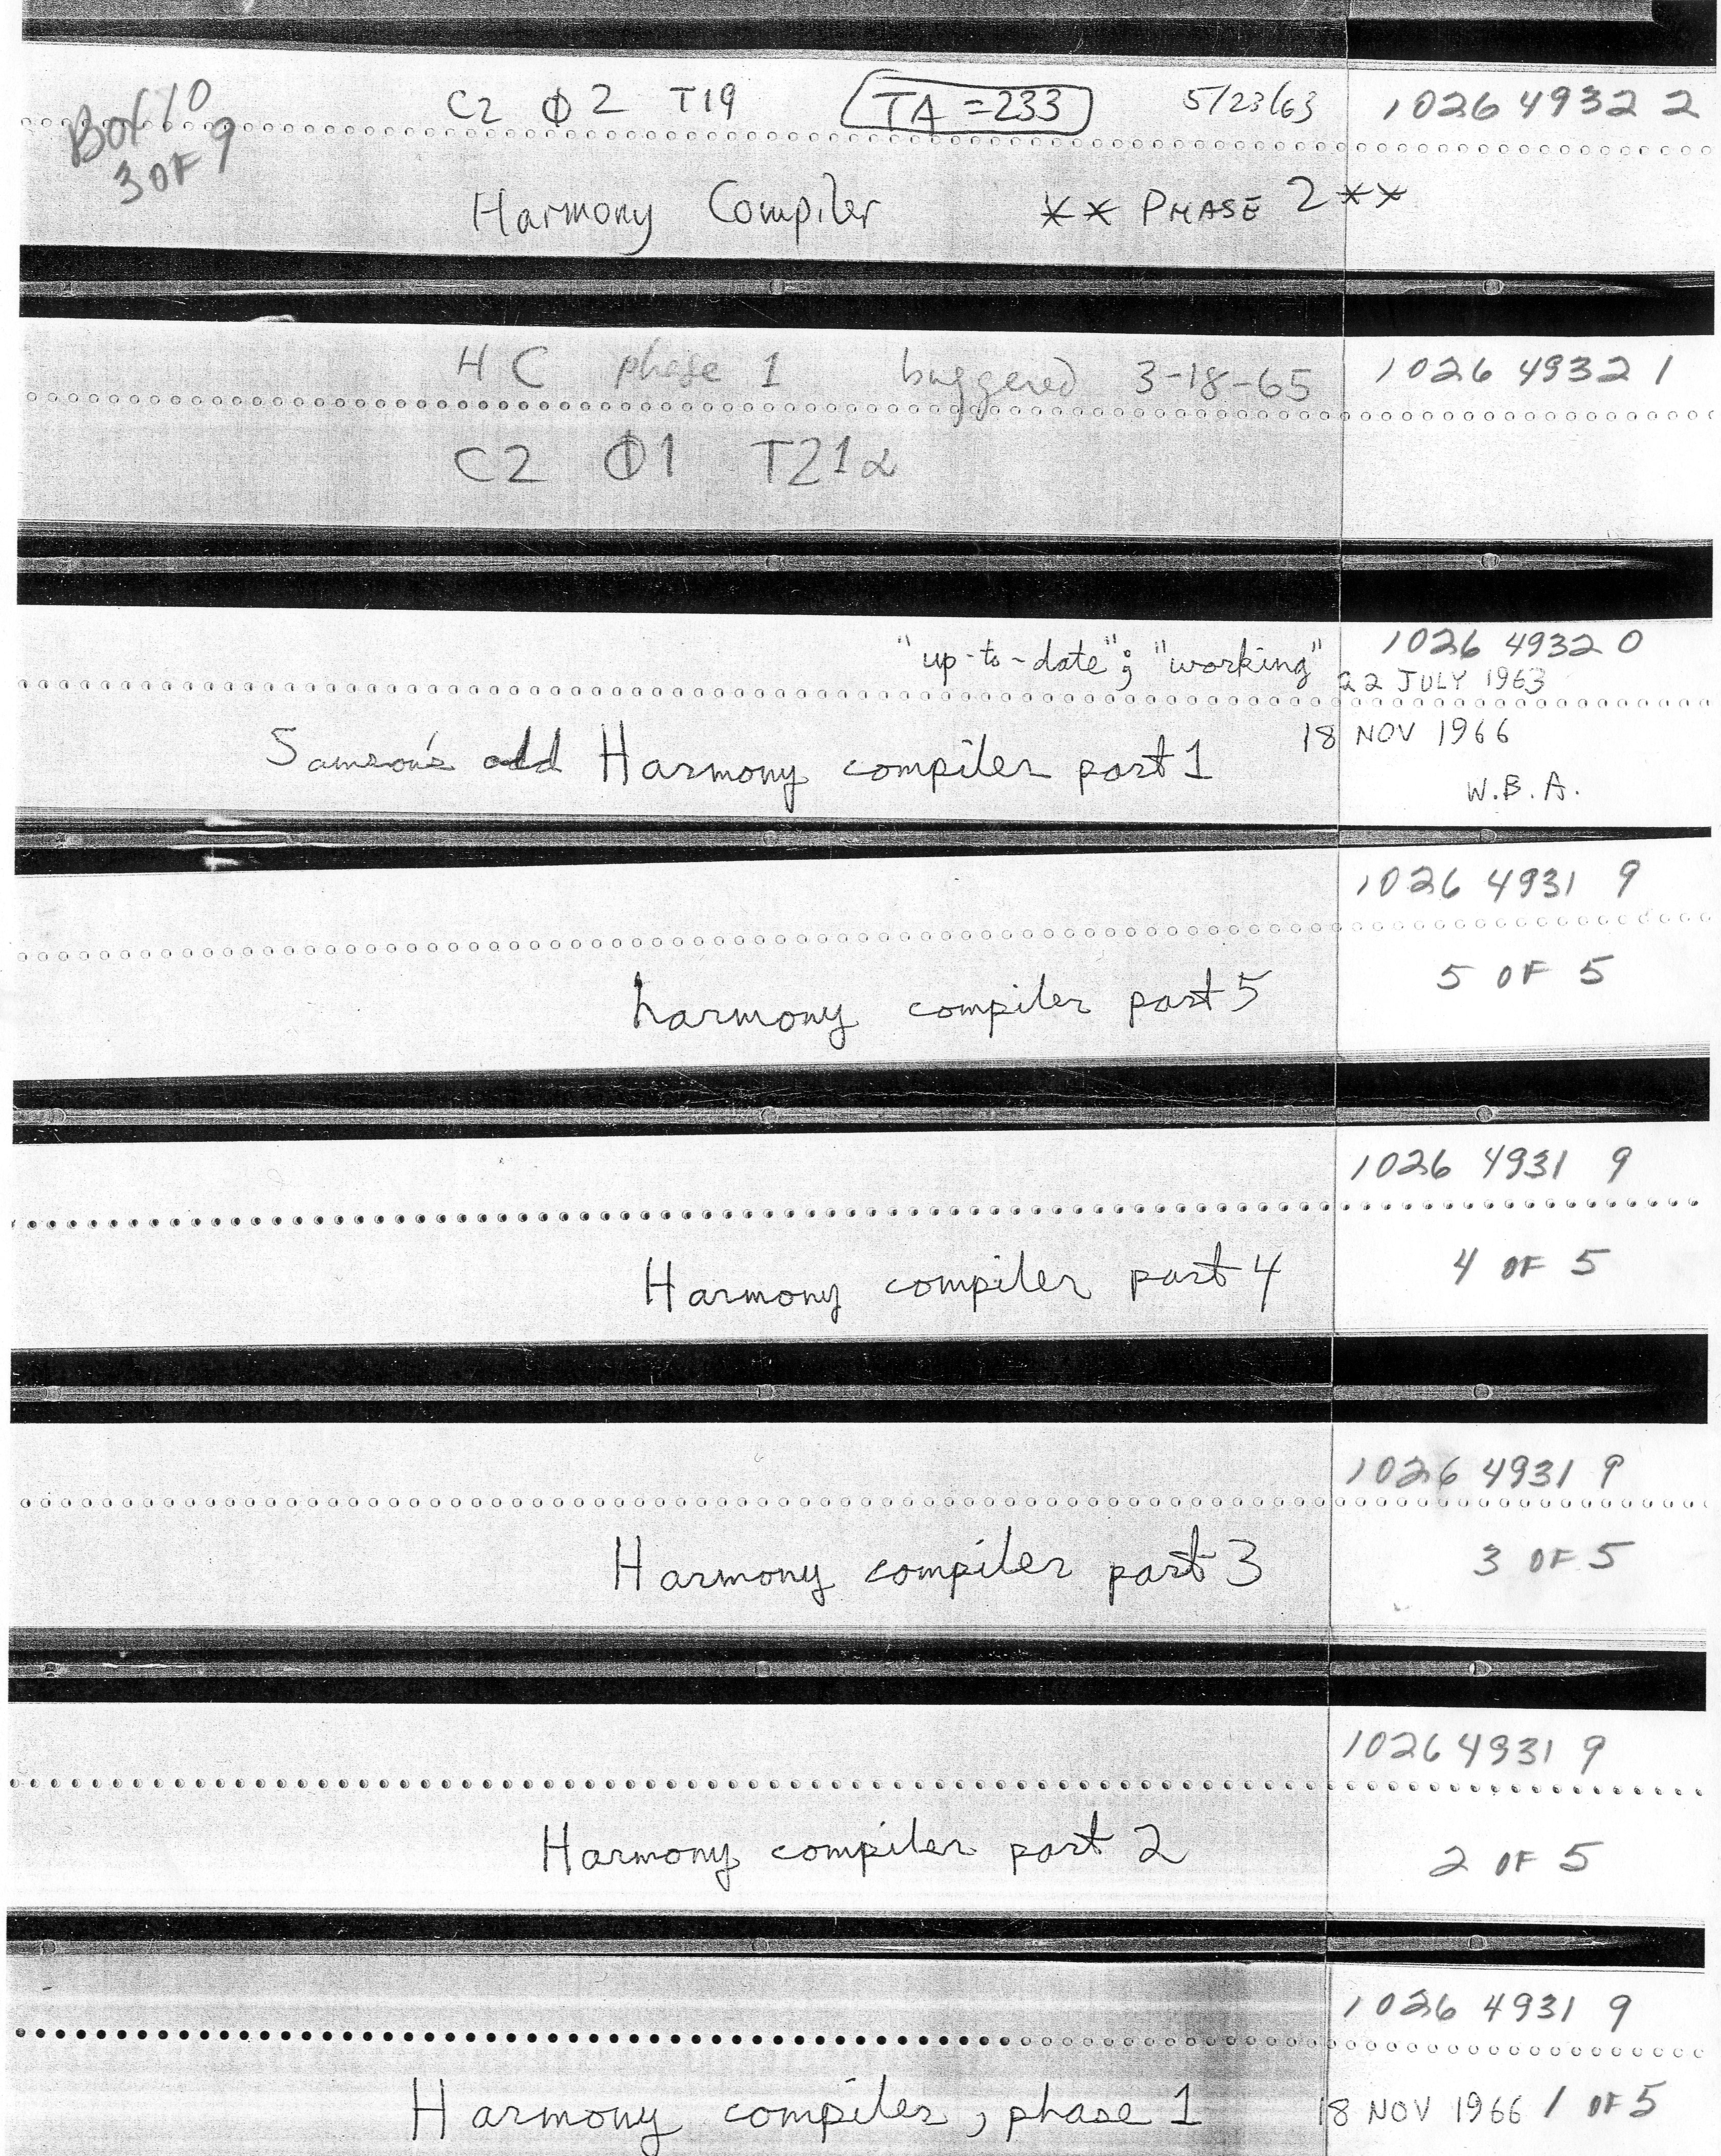 Box 10
3 OF 9
C2 Φ2 T19 TA = 233 5/23/63 1026 4932 2
Harmony Compiler ** PHASE 2 **
HC phase 1 buggered 3-18-65 1026 4932 1
C2 Φ1 T21α
"up-to-date"; "working" 1026 4932 0
22 JULY 1963
Samson's odd Harmony compiler part 1 18 NOV 1966
W.B.A.
1026 4931 9
harmony compiler part 5 5 OF 5
1026 4931 9
Harmony compiler part 4 4 OF 5
1026 4931 9
Harmony compiler part 3 3 OF 5
1026 4931 9
Harmony compiler part 2 2 OF 5
1026 4931 9
Harmony compiler, phase 1 18 NOV 1966 1 OF 5